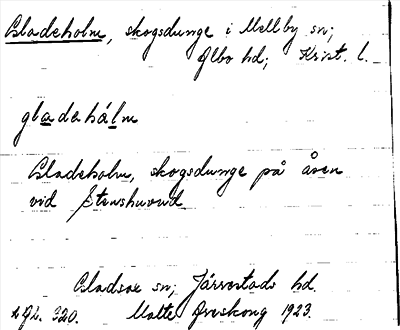 Gladeholm, skogsdunge i Mellby sn;
Albo hd; Krist. l.
gladehálm
Gladeholm, skogsdunge på åsen
vid Stenshuvud
Gladsax sn; Järrestads hd.
320. Malte Areskog 1923.